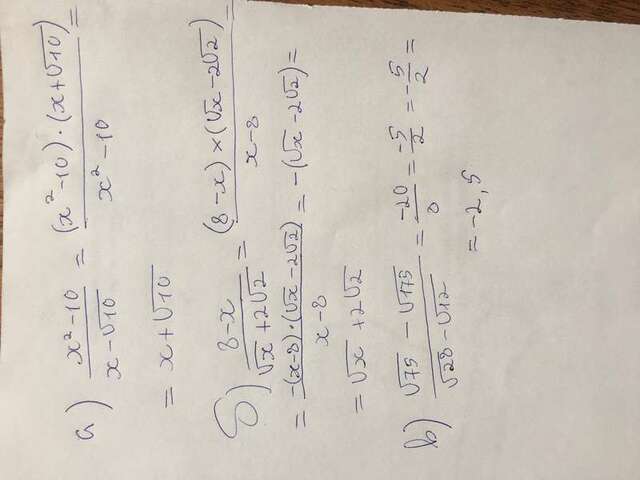 а) (x²-10)/(x-√10) = ((x²-10)·(x+√10))/(x²-10) =
= x+√10
б) (8-x)/(√x+2√2) = ((8-x)×(√x-2√2))/(x-8) =
= (-(x-8)·(√x-2√2))/(x-8) = -(√x-2√2) =
= √x+2√2
в) (√75-√175)/(√28-√12) = -20/8 = -5/2 = -5/2 =
= -2,5